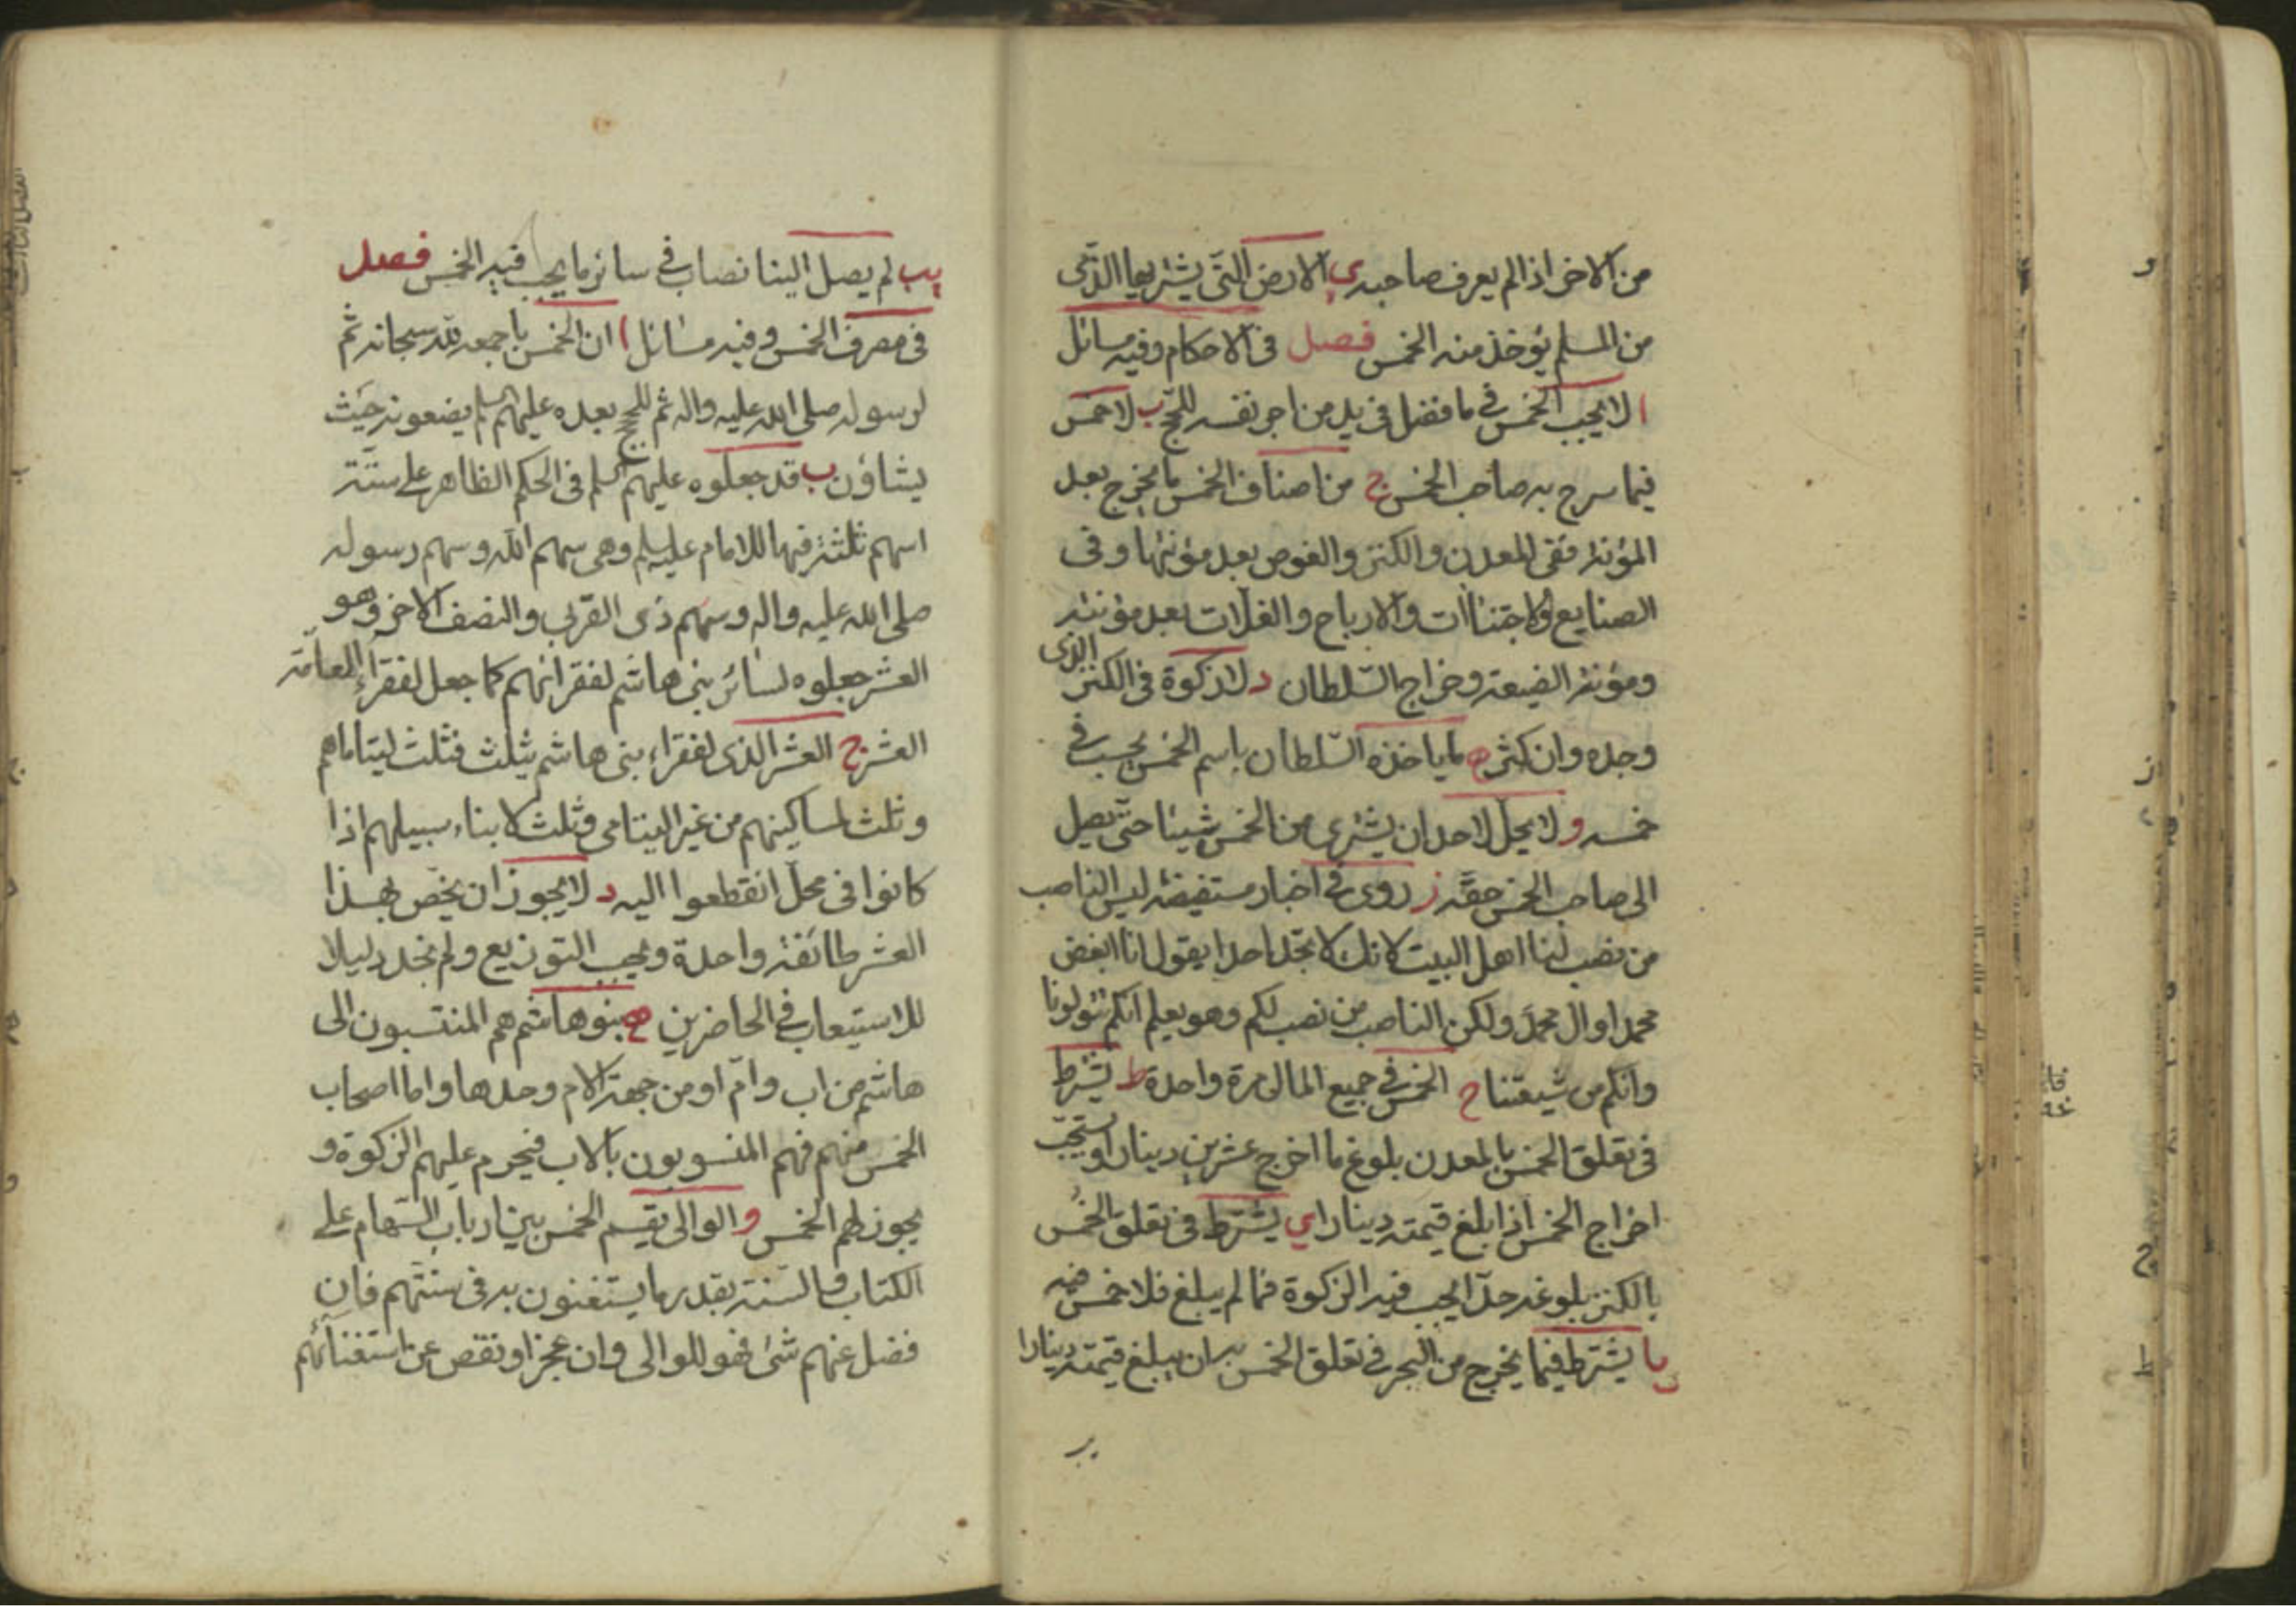 من الاخر اذا لم يعرف صاحبه ي الارض التي يشتريها الذمي
من المسلم يؤخذ منه الخمس فصل في الاحكام وفيه مسائل
ا لا يجب الخمس في ما فضل في يد من اجر نفسه للحج ب لا خمس
فيما سرح به صاحب الخمس ج من اصناف الخمس ما يخرج بعد
المؤنة ففي المعدن والكنز والغوص بعد مؤنتها وفي
الصنايع والاجتناآت والارباح والغلات بعد مؤنته
ومؤنة الضيعة وخراج السلطان د لا زكوة في الكنز الذي
وجده وان كثر ه ما ياخذه السلطان باسم الخمس يحسب في
خمسه و لا يحل لاحد ان يشتري من الخمس شيئا حتى يصل
الى صاحب الخمس حقه ز روى في اخبار مستفيضة ليس الناصب
من نصب لنا اهل البيت لانك لا تجد احدا يقول انا ابغض
محمدا وال محمد ولكن الناصب من نصب لكم وهو يعلم انكم تتولونا
وانكم من شيعتنا ح الخمس في جميع المال مرة واحدة ط يشترط
في تعلق الخمس بالمعدن بلوغ ما اخرج عشرين دينارا ويستحب
اخراج الخمس اذا بلغ قيمته دينارا ي يشترط في تعلق الخمس
بالكنز بلوغه حدا يجب فيه الزكوة فما لم يبلغ فلا خمس فيه
يا يشترط فيما يخرج من البحر في تعلق الخمس به ان يبلغ قيمته دينارا
يب
يب لم يصل الينا نصاب في سائر ما يجب فيه الخمس فصل
في مصرف الخمس وفيه مسائل ا ان الخمس باجمعه لله سبحانه ثم
لرسوله صلى الله عليه واله ثم للحجج بعده عليهم السلم يضعونه حيث
يشاؤن ب قد جعلوه عليهم السلم في الحكم الظاهر على ستة
اسهم ثلثة فيها للامام عليه السلم وهي سهم الله وسهم رسوله
صلى الله عليه واله وسهم ذي القربى والنصف الاخر وهو
العشر جعلوه لسائر بني هاشم لفقرائهم كما جعل لفقراء العامة
العشر ج العشر الذي لفقراء بني هاشم يثلث فثلث ليتاماهم
وثلث لمساكينهم من غير اليتامى وثلث لابناء سبيلهم اذا
كانوا في محل انقطعوا اليه د لا يجوز ان يخص بهذا
العشر طائفة واحدة ويجب التوزيع ولم نجد دليلا
للاستيعاب في الحاضرين ه بنو هاشم هم المنتسبون الى
هاشم من اب وام او من جهة الام وحدها واما اصحاب
الخمس منهم فهم المنسوبون بالاب فيحرم عليهم الزكوة و
يجوز لهم الخمس و الوالي يقسم الخمس بين ارباب السهام على
الكتاب والسنة بقدر ما يستغنون به في سنتهم فان
فضل عنهم شئ فهو للوالي وان عجز او نقص عن استغنائهم